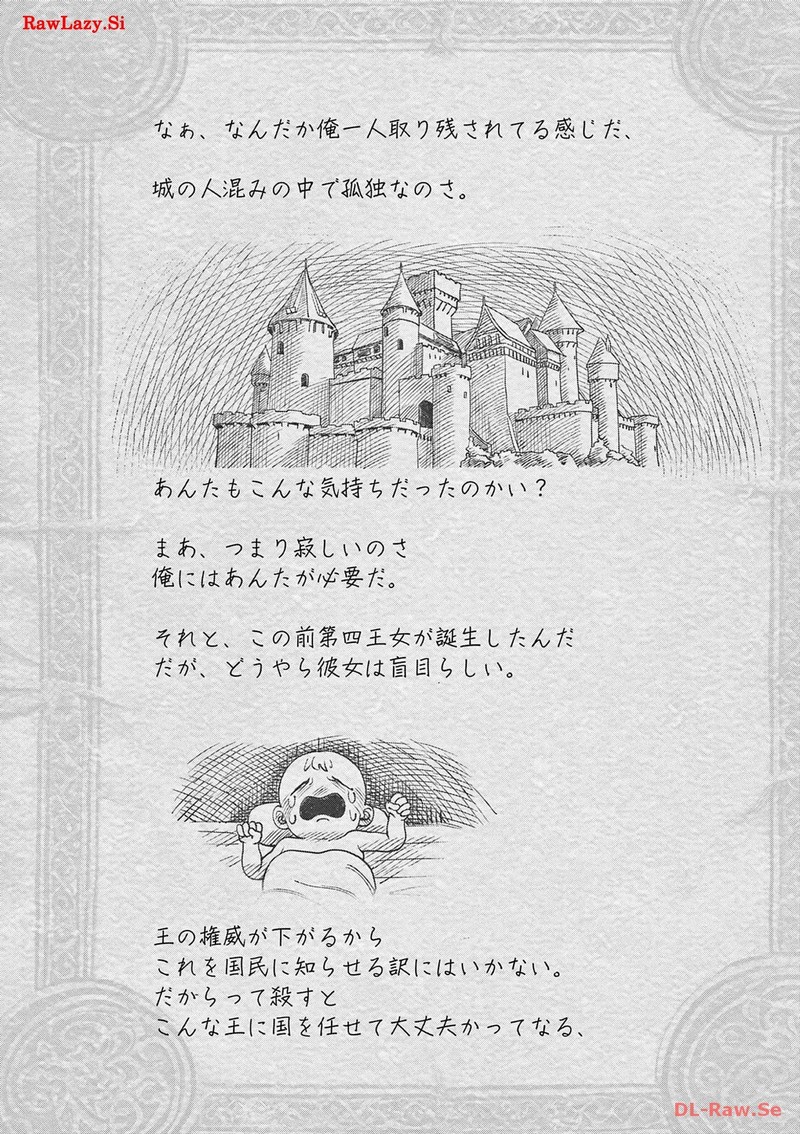 RawLazy.Si
なぁ、なんだか俺一人取り残されてる感じだ、
城の人混みの中で孤独なのさ。
あんたもこんな気持ちだったのかい？
まあ、つまり寂しいのさ
俺にはあんたが必要だ。
それと、この前第四王女が誕生したんだ
だが、どうやら彼女は盲目らしい。
王の権威が下がるから
これを国民に知らせる訳にはいかない。
だからって殺すと
こんな王に国を任せて大丈夫かってなる、
DL-Raw.Se